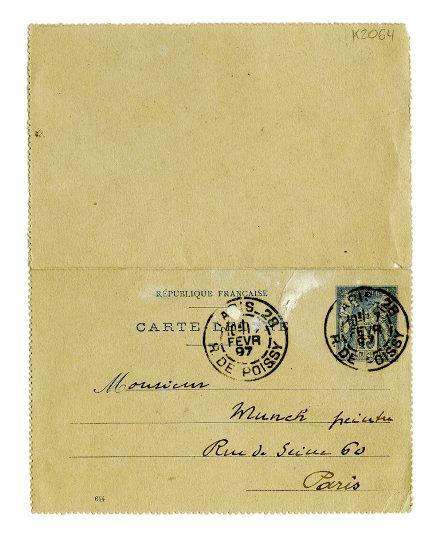 K2064
RÉPUBLIQUE FRANÇAISE
CARTE L
E
PARIS_28
FEVR
97
R. DE POISSY
28
FEVR
97
R. DE POISSY
Monsieur
Munch peintre
Rue de Seine 60
Paris
614